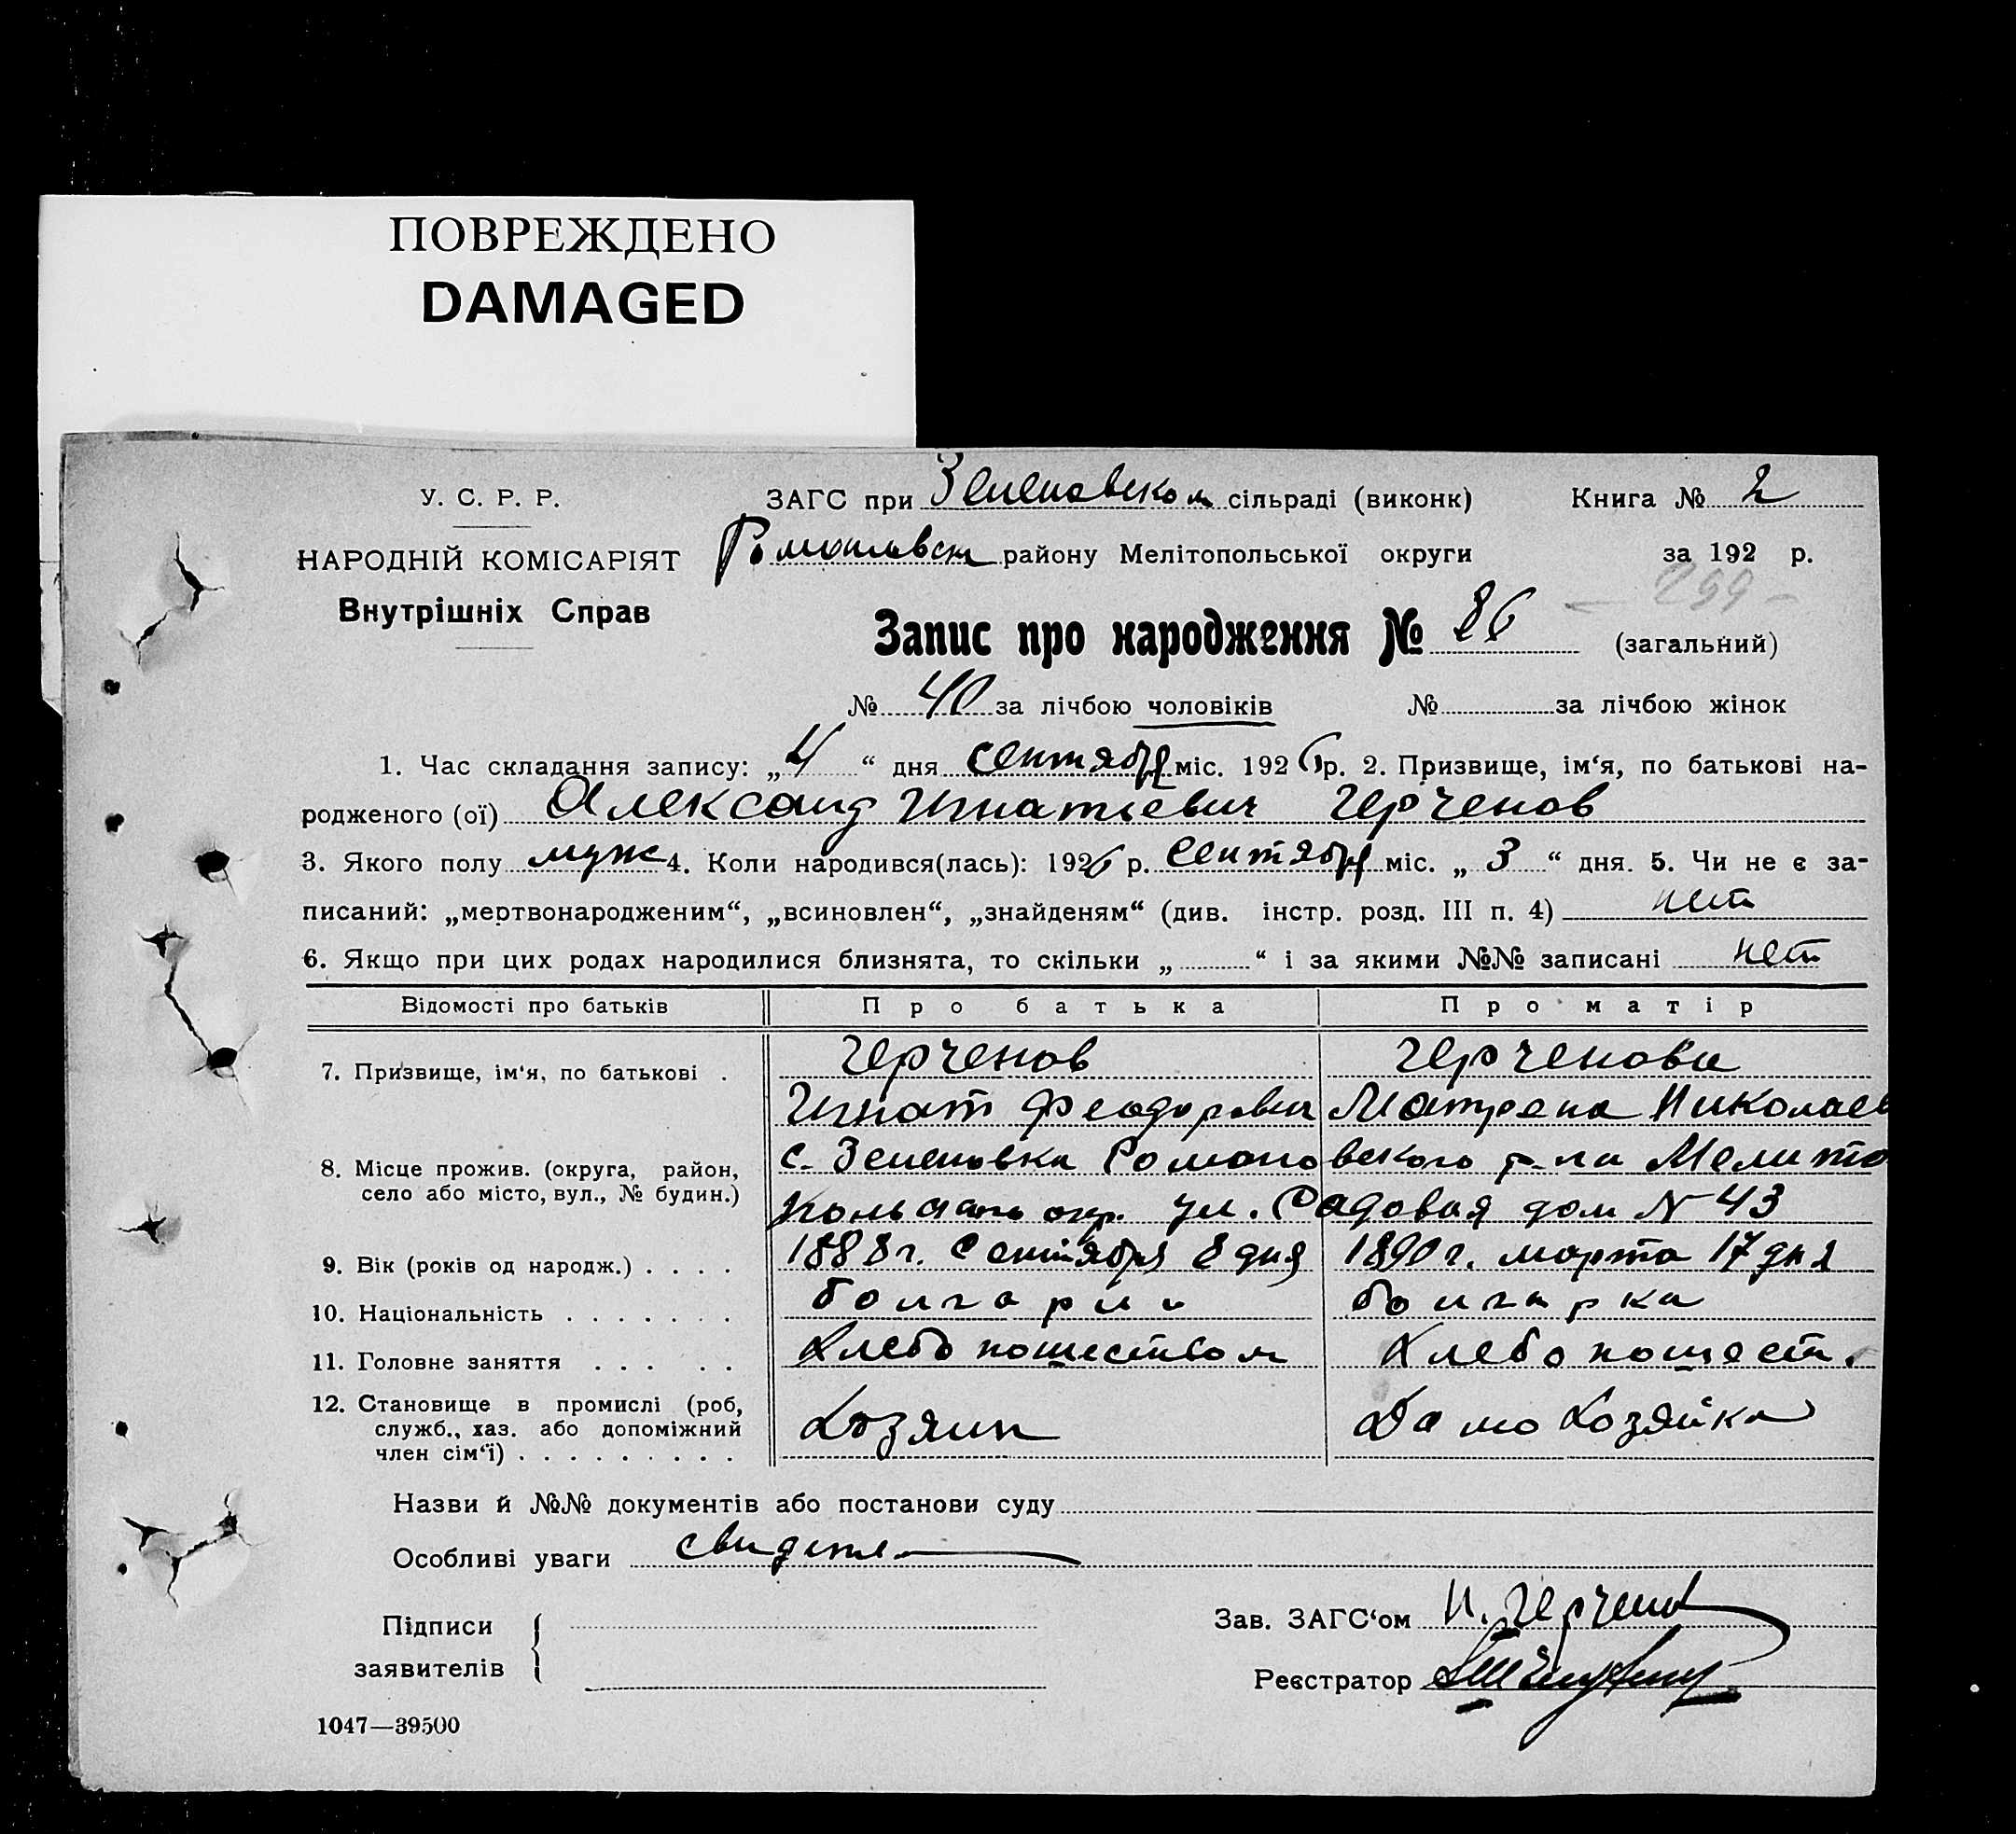 ПОВРЕЖДЕНО
DAMAGED
У. С. Р. Р.
ЗАГС при Зеленовском сільраді (виконк) Книга № 2
НАРОДНІЙ КОМІСАРІЯТ
Романовск району Мелітопольської округи за 192 р.
Внутрішніх Справ
299
Запис про народження № 86 (загальний)
№ 40 за лічбою чоловіків № за лічбою жінок
1. Час складання запису: „4“ дня сентября міс. 1926 р. 2. Призвище, ім‘я, по батькові на-
родженого (ої) Александ Игнатьевич Герченов
3. Якого полу муж 4. Коли народився(лась): 1926 р. сентября міс. „3“ дня. 5. Чи не є за-
писаний: „мертвонародженим“, „всиновлен“, „знайденям“ (див. інстр. розд. III п. 4) нет
6. Якщо при цих родах народилися близнята, то скільки „ “ і за якими №№ записані нет
Відомості про батьків Про батька Про матір
7. Призвище, ім‘я, по батькові . Герченов Герченова
Игнат Феодорович Матрена Николаев
8. Місце прожив. (округа, район, село або місто, вул., № будин.) с. Зеленовка Романовского р-на Мелито
польского окр. ул. Садовая дом N 43
9. Вік (років од народж.) . . . . 1888 г. Сентября 8 дня 1890 г. марта 17 дня
10. Національність . . . . . . . болгарин болгарка
11. Головне заняття . . . . . Хлебопашеством Хлебопашест.
12. Становище в промислі (роб,
служб., хаз. або допоміжний
член сім‘ї) . . . . . . . . . Хозяин Домохозяйка
Назви й №№ документів або постанови суду
Особливі уваги
Підписи
заявителів
Зав. ЗАГС‘ом И. Герченов
Реєстратор
1047—39500